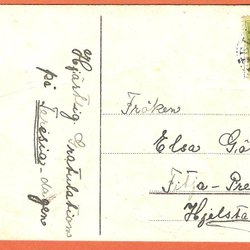 Hjärtlig Gratulation
på Teresias-dagen
Fröken
Elsa Gå
Fitja-Pre
Hjelsta